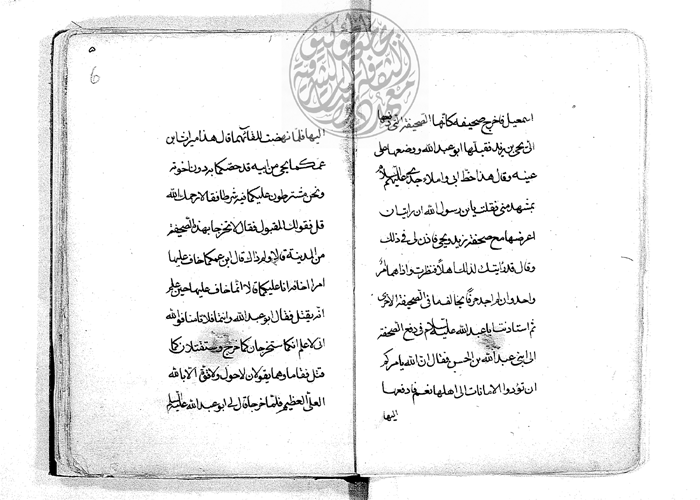 اسمعيل فاخرج صحيفة كانها الصحيفة التى دفعها
الى يحيى بن زيد فقبلها ابو عبد الله ووضعها على
عينه وقال هذا خط ابى واملاء جدى عليهم السلام
بمشهد منى فقلت يا بن رسول الله ان رايت ان
اعرضها مع صحيفة زيد ويحيى فاذن لى فى ذلك
وقال قد رايتك لذلك اهلا فنظرت واذا هما امر
واحد ولم اجد حرفا يخالف ما فى الصحيفة الاخرى
ثم استاذنت ابا عبد الله عليه السلام فى دفع الصحيفة
الى ابنى عبد الله بن الحسن فقال ان الله يامركم
ان تؤدوا الامانات الى اهلها نعم فادفعها
اليها
اليها فلما نهضت للقائهما قال هذا ميراث ابن
عمكما يحيى من ابيه قد خصكما به دون اخوته
ونحن مشترطون عليكما فيه شرطا فقالا رحمك الله
قل فقولك المقبول فقال لا تخرجا بهذه الصحيفة
من المدينة قالا ولم ذاك قال ان ابن عمكما خاف عليها
امرا اخافه انا عليكما قالا انما خاف عليها حين علم
انه يقتل فقال ابو عبد الله وانتما فلا تامنا فوالله
انى لاعلم انكما ستخرجان كما خرج وستقتلان كما
قتل فقاما وهما يقولان لا حول ولا قوة الا بالله
العلى العظيم فلما خرجا قال لى ابو عبد الله عليه السلام
6